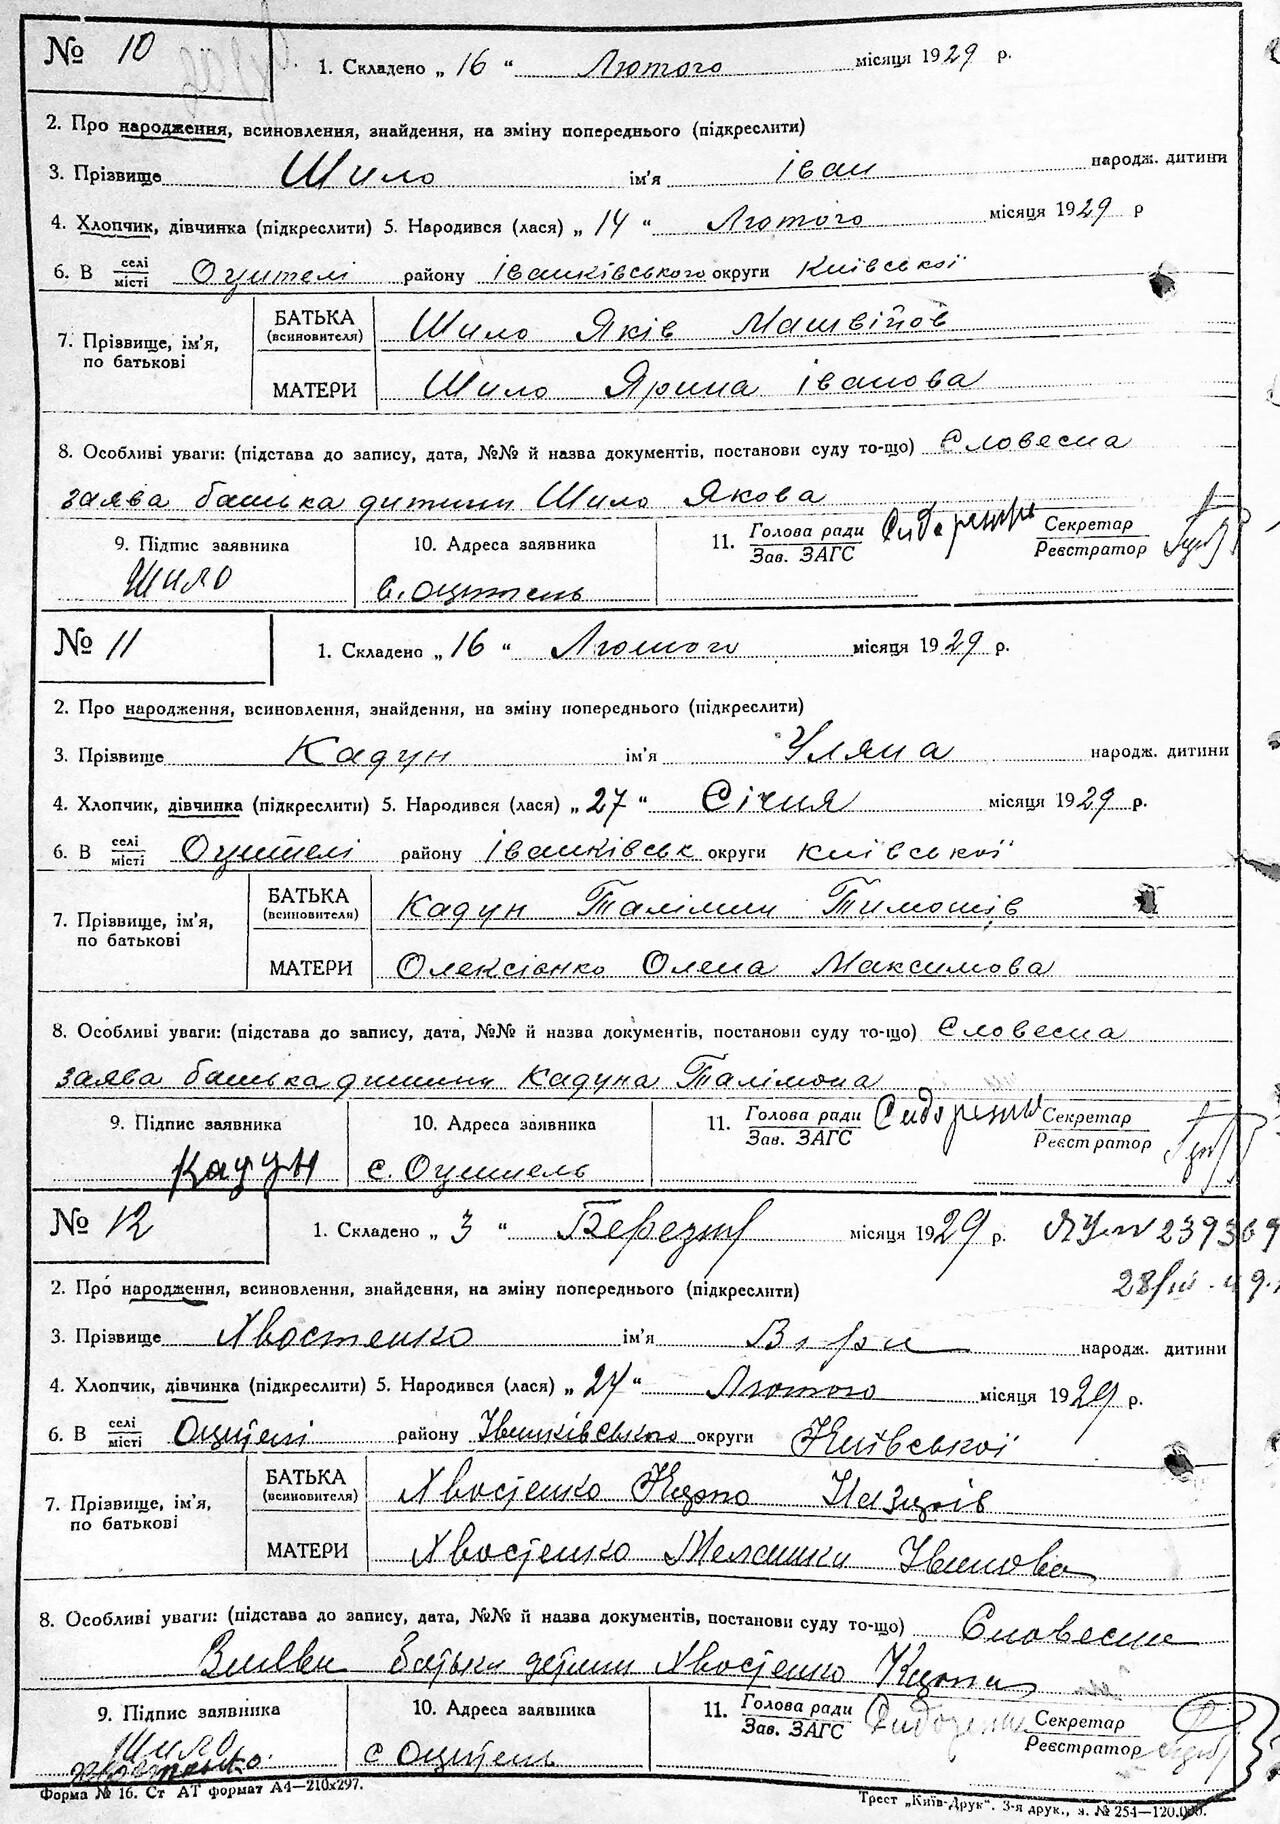 № 10
1. Складено „ 16 “ Лютого місяця 1929 р.
2. Про народження, всиновлення, знайдення, на зміну попереднього (підкреслити)
3. Прізвище Шило ім'я Іван народж. дитини
4. Хлопчик, дівчинка (підкреслити) 5. Народився (лася) „ 14 “ Лютого місяця 1929 р
6. В селі/місті Оцителі району Іванківського округи Київської
7. Прізвище, ім'я, по батькові
БАТЬКА (всиновителя) Шило Яків Матвійов
МАТЕРИ Шило Ярина Іванова
8. Особливі уваги: (підстава до запису, дата, №№ й назва документів, постанови суду то-що) Словесна
заява батька дитини Шило Якова
9. Підпис заявника 10. Адреса заявника 11. Голова ради/Зав. ЗАГС Секретар/Реєстратор
Шило с. Оцитель
№ 11
1. Складено „ 16 “ Лютого місяця 1929 р.
2. Про народження, всиновлення, знайдення, на зміну попереднього (підкреслити)
3. Прізвище Кадун ім'я Уляна народж. дитини
4. Хлопчик, дівчинка (підкреслити) 5. Народився (лася) „ 27 “ Січня місяця 1929 р.
6. В селі/місті Оцителі району Іванківськ округи Київської
7. Прізвище, ім'я, по батькові
БАТЬКА (всиновителя) Кадун Талімон Тимошів
МАТЕРИ Олексієнко Олена Максимова
8. Особливі уваги: (підстава до запису, дата, №№ й назва документів, постанови суду то-що) Словесна
заява батька дитини Кадуна Талімона
9. Підпис заявника 10. Адреса заявника 11. Голова ради/Зав. ЗАГС Секретар/Реєстратор
Кадун с. Оцитель
№ 12
1. Складено „ 3 “ Березня місяця 1929 р. 239369
2. Про народження, всиновлення, знайдення, на зміну попереднього (підкреслити)
3. Прізвище Хвостенко ім'я Віра народж. дитини
4. Хлопчик, дівчинка (підкреслити) 5. Народився (лася) „ 24 “ Лютого місяця 1929 р.
6. В селі/місті Оцителі району Іванківського округи Київської
7. Прізвище, ім'я, по батькові
БАТЬКА (всиновителя) Хвостенко
МАТЕРИ Хвостенко Меланка Іванова
8. Особливі уваги: (підстава до запису, дата, №№ й назва документів, постанови суду то-що) Словесна
Заява батька дитини Хвостенко
9. Підпис заявника 10. Адреса заявника 11. Голова ради/Зав. ЗАГС Секретар/Реєстратор
Шило
Хвостенко с Оцитель
Форма № 16. Ст АТ формат А4—210х297. Трест „Київ-Друк“. 3-я друк., з. № 254—120.000.